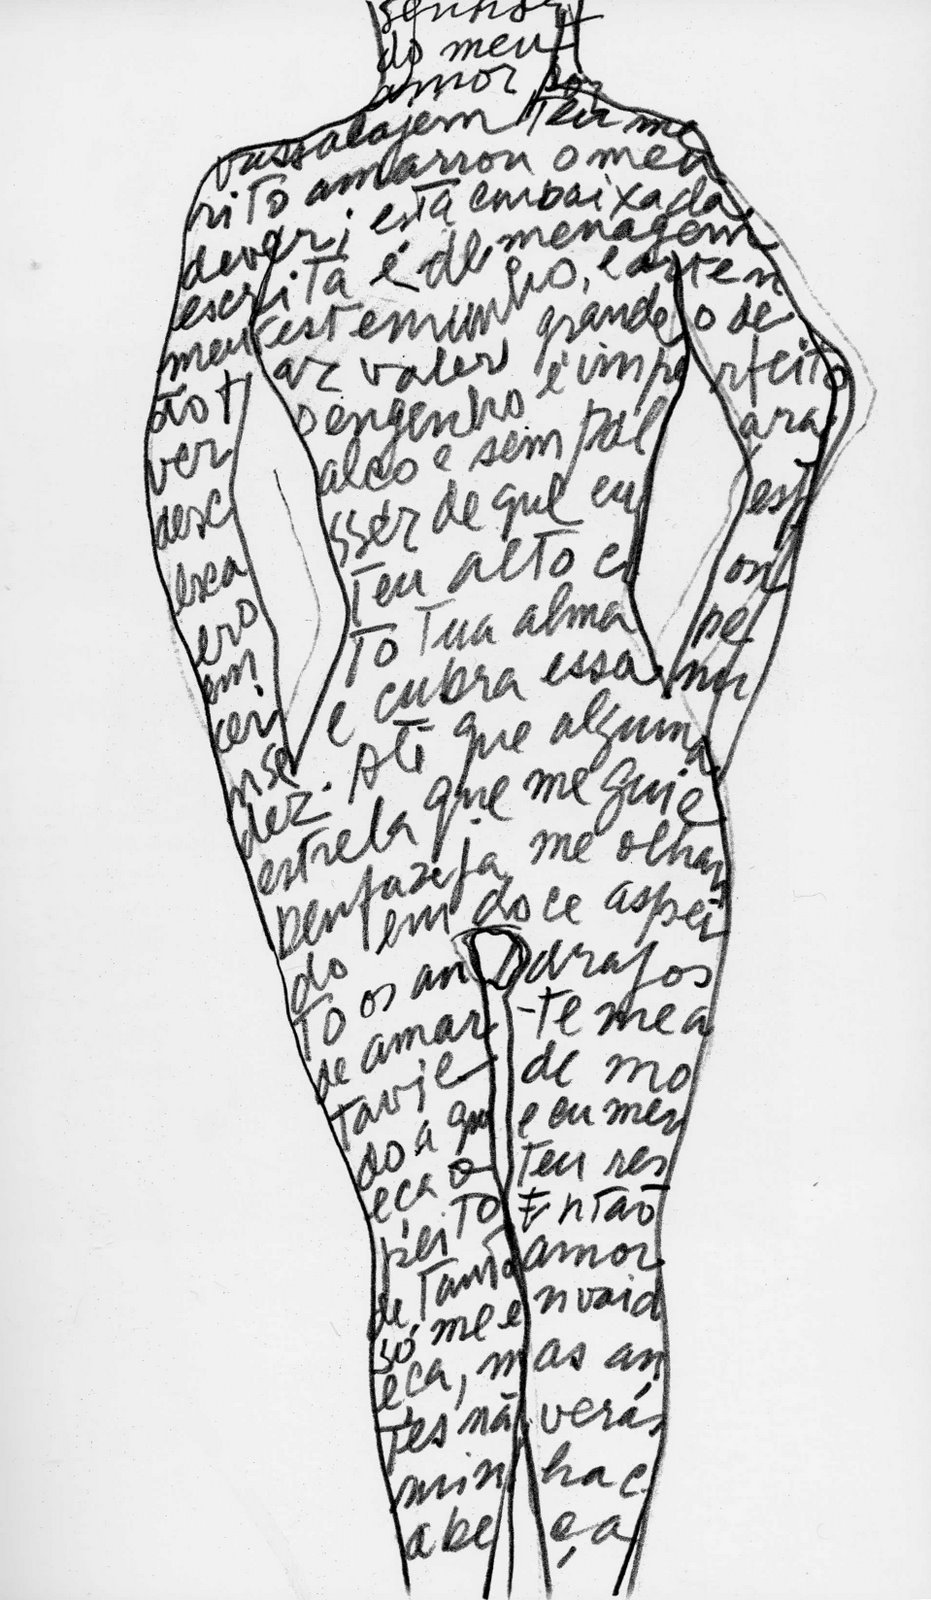 senhor
do meu
amor por
vassalajem teu me
rito amarrou o meu
dever; esta embaixada
escrita é de menagem
meu testemunho, e arten
ar valer grande o de
ão t o engenho é imp rfeito
ver alco e sem pal ara
desc sser de que eu est
esca teu alto c on
ero to tua alma pe
em e cubra essa nu
cer
nse
dez. Até que alguma
estrela que me guie
benfazeja me olhan
do em doce aspei
to os an drajos
de amar -te me a
tavie de mo
do a qu e eu mer
eca o teu res
peito Então
de tanto amor
só me e nvaid
eça, m as an
tes nã verás
min ha c
abe ça